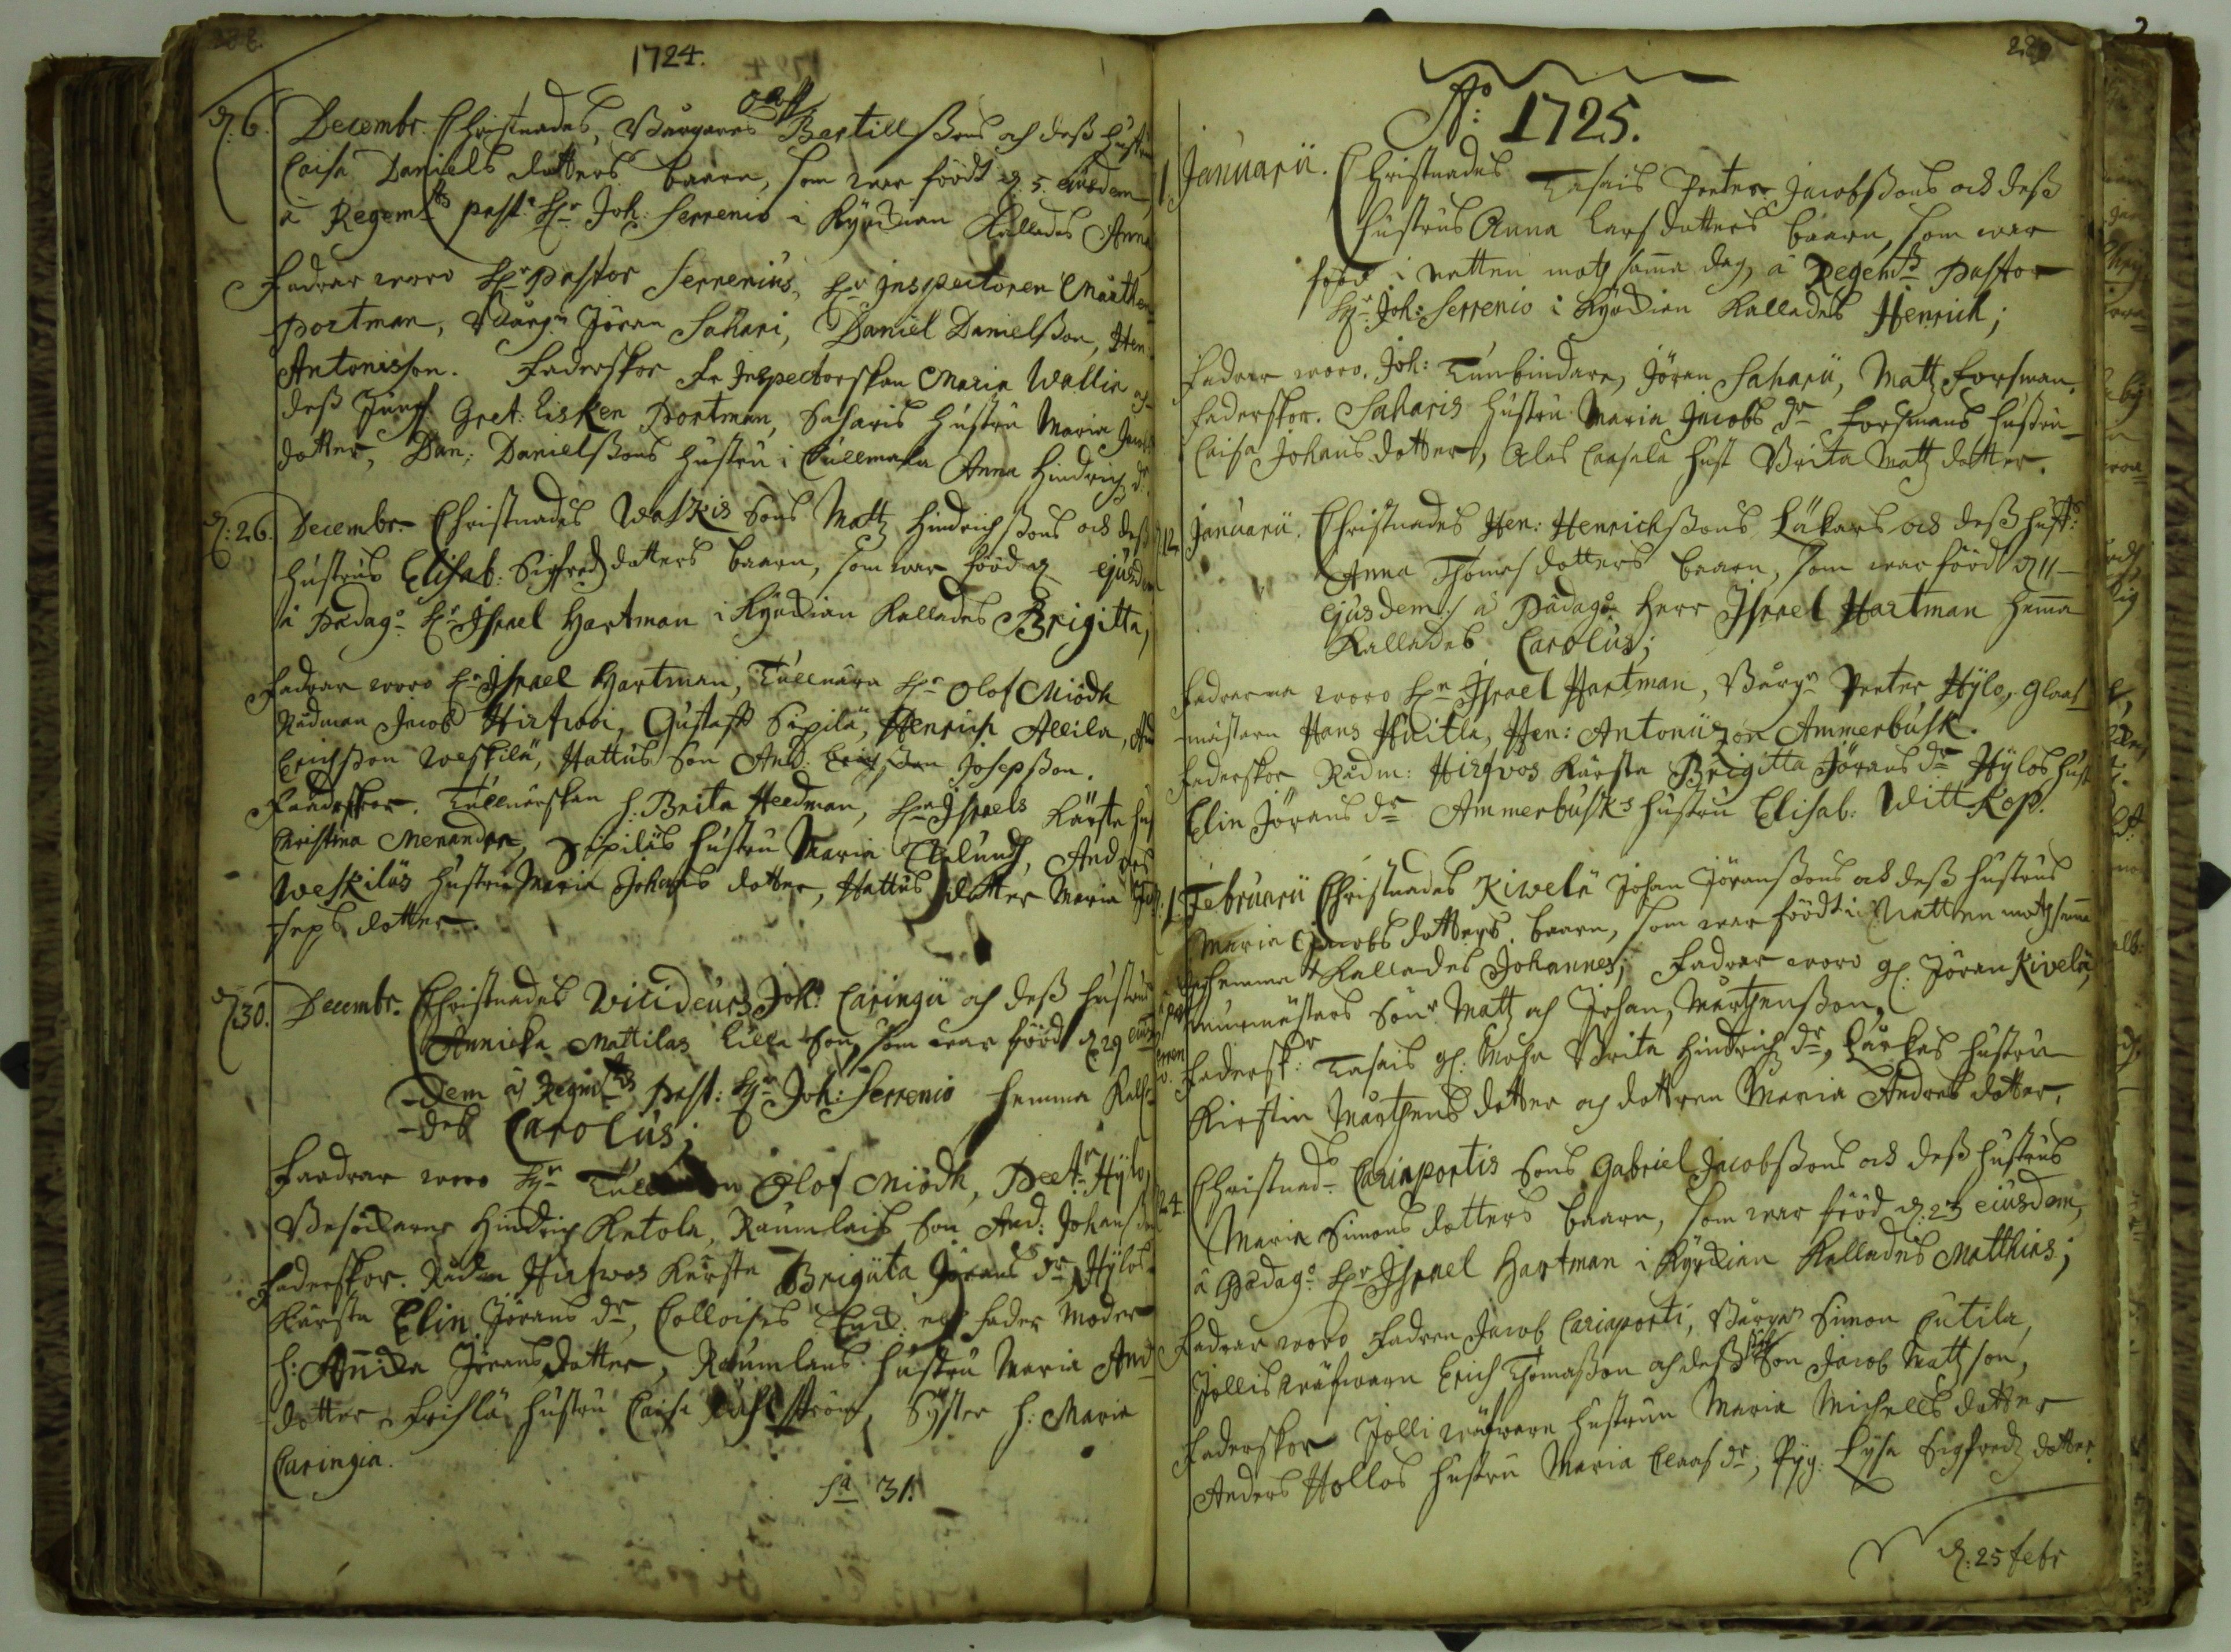 288.
1724.
d. 6. Decembr. Christnades, Bårgares Bertillßons och deß Hustrus
Caisa Daniels dotters baarn, som war föödt d. 5. eiusdem,
à Regemtz past: Hr Joh: Serrenio i Kyrckian Kallades Anna
Fadrar woro Hr Pastor Serrenius, Hr Inspectoren Mårthen
Portman, Bårgn Jöran Sahari, Daniel Danielßon, Hen:
Antonisson. Faderskor Fr Inspectorskan Maria Wallia och
deß Jungf Gret: Lisken Portman, Saharis Hustru Maria Jacobs
dotter, Dan: Danielßons hustru i Cullmala Anna Hindrichz dr.
d. 26. Decembr. Christnades Waskis Sons Mattz Hindrichßons och deß
hustrus Elisab: Sigfredz dotters baarn, som war föödt d. ejusdem
à Pædag: Hr Israel Hartman i Kyrckian Kallades Brigitta;
Fadrar woro Hr Israel Hartman, Tullnären Hr Olof Miödh
Rådman Jacob Hirfwoi, Gustaff Sipilä, Henrich Allila, And
Erichßon Weskilä, Hattus Son And: Josepßon.
Faderskor. Tullnärskan h. Brita Heedman, Hr Israels Kärsta hust
Christina Menander, Sipiläs hustru Maria Ekelundh, Anders
Weskiläs hustru Maria Johans dotter, Hattus dotter Maria Jo-
seps dotter.
d. 30. Decembr. Christnades Vicideurs Joh: Caringii och deß hustrus
Annicka Mattilas lilla Son, som war föödt d. 29 eius-
dem à Regmtz Past: Hr Joh: Serrenio hemma Kalla-
des Carolus;
Faadrar woro Hr Olof Miödh, Peetr Hylo,
Besökaren Hindrich Ketola, Raumlais Son And: Johansson
Faderskor. Rådm Hirfwos Kärsta Brigiita Jörans dr Hylos
Kärsta Elin Jörans dr, Colloises fader Moder
h: Annika Jörans dotter, Raumlans hustru Maria And
dotter, Frislä hustru Caisa, Syster h: Maria
Caringia.
Sa 31.
289
Ao: 1725.
1 Januarii. Christnades Tasais Peeter Jacobßons och deß
hustrus Anna Lars dotters baarn, som war
född i natten motz sama dag, à Regemtz Pastor
Hr Joh: Serrenio i Kyrckian Kallades Henrich;
Fadrar woro. Joh: Tunbindare, Jöran Saharii, Mattz Forsman.
Faderskor. Saharis hustru Maria Jacobs dr Forsmans hustru
Caisa Johans dotter, Alas Caasala hust Brita Mattz dotter.
12 Januarii. Christnades Hen: Henrichßons Läkars och deß hust:
Anna Thomas dotters baarn, som war föödt d 11
ejusdem / à Pædag: Herr Israel Hartman hema
Kallades Carolus;
Fadrarna woro Hr Israel Hartman, Bårgn Peeter Hylo, glaas
mästarn Hans Huitla, Hen: Antoniizon Ammerbusk.
Faderskor Rådm: Hirfwos Kärsta Brigitta Jörans dr Hylos hust
Elin Jörans dr Ammerbusks hustru Elisab: Wittkop.
1. Februarii Christnades Kiwelä Johan Jöransßons och deß hustrus
Maria Jacobs dotters. baarn, som war föödt i Natten motz sama
dag hemma Kallades Johannes; Fadrar woro gl. Jöran Kivelä,
murmästars Sönr Mattz och Johan, Mårthenßon,
Fadersk: Tasais gl: Moder Brita Hindrichz dr, Lårkas hustru
Kirstin Mårthens dotter och dottren Maria Anders dotter.
24 Christnads Cariaportis Sons Gabriel Jacobßons och deß hustrus
Maria Simons dotters baarn, som war född d. 23 eiusdem,
à Pædag: Hr Israel Hartman i Kyrckian Kallades Matthias;
Fadrar woro Fadren Jacob Cariaporti, Bårgn Simon Cutila,
Jollis Wäfwarn Erich Thomaßon och deß Son Jacob Mattzson,
Faderskor Jolli wäfwarn hustrun Maria Michells dotter
Anders Hollos hustru Maria Claas dr, Pyg: Lysa Sigfredz dotter.
d: 25 Febr